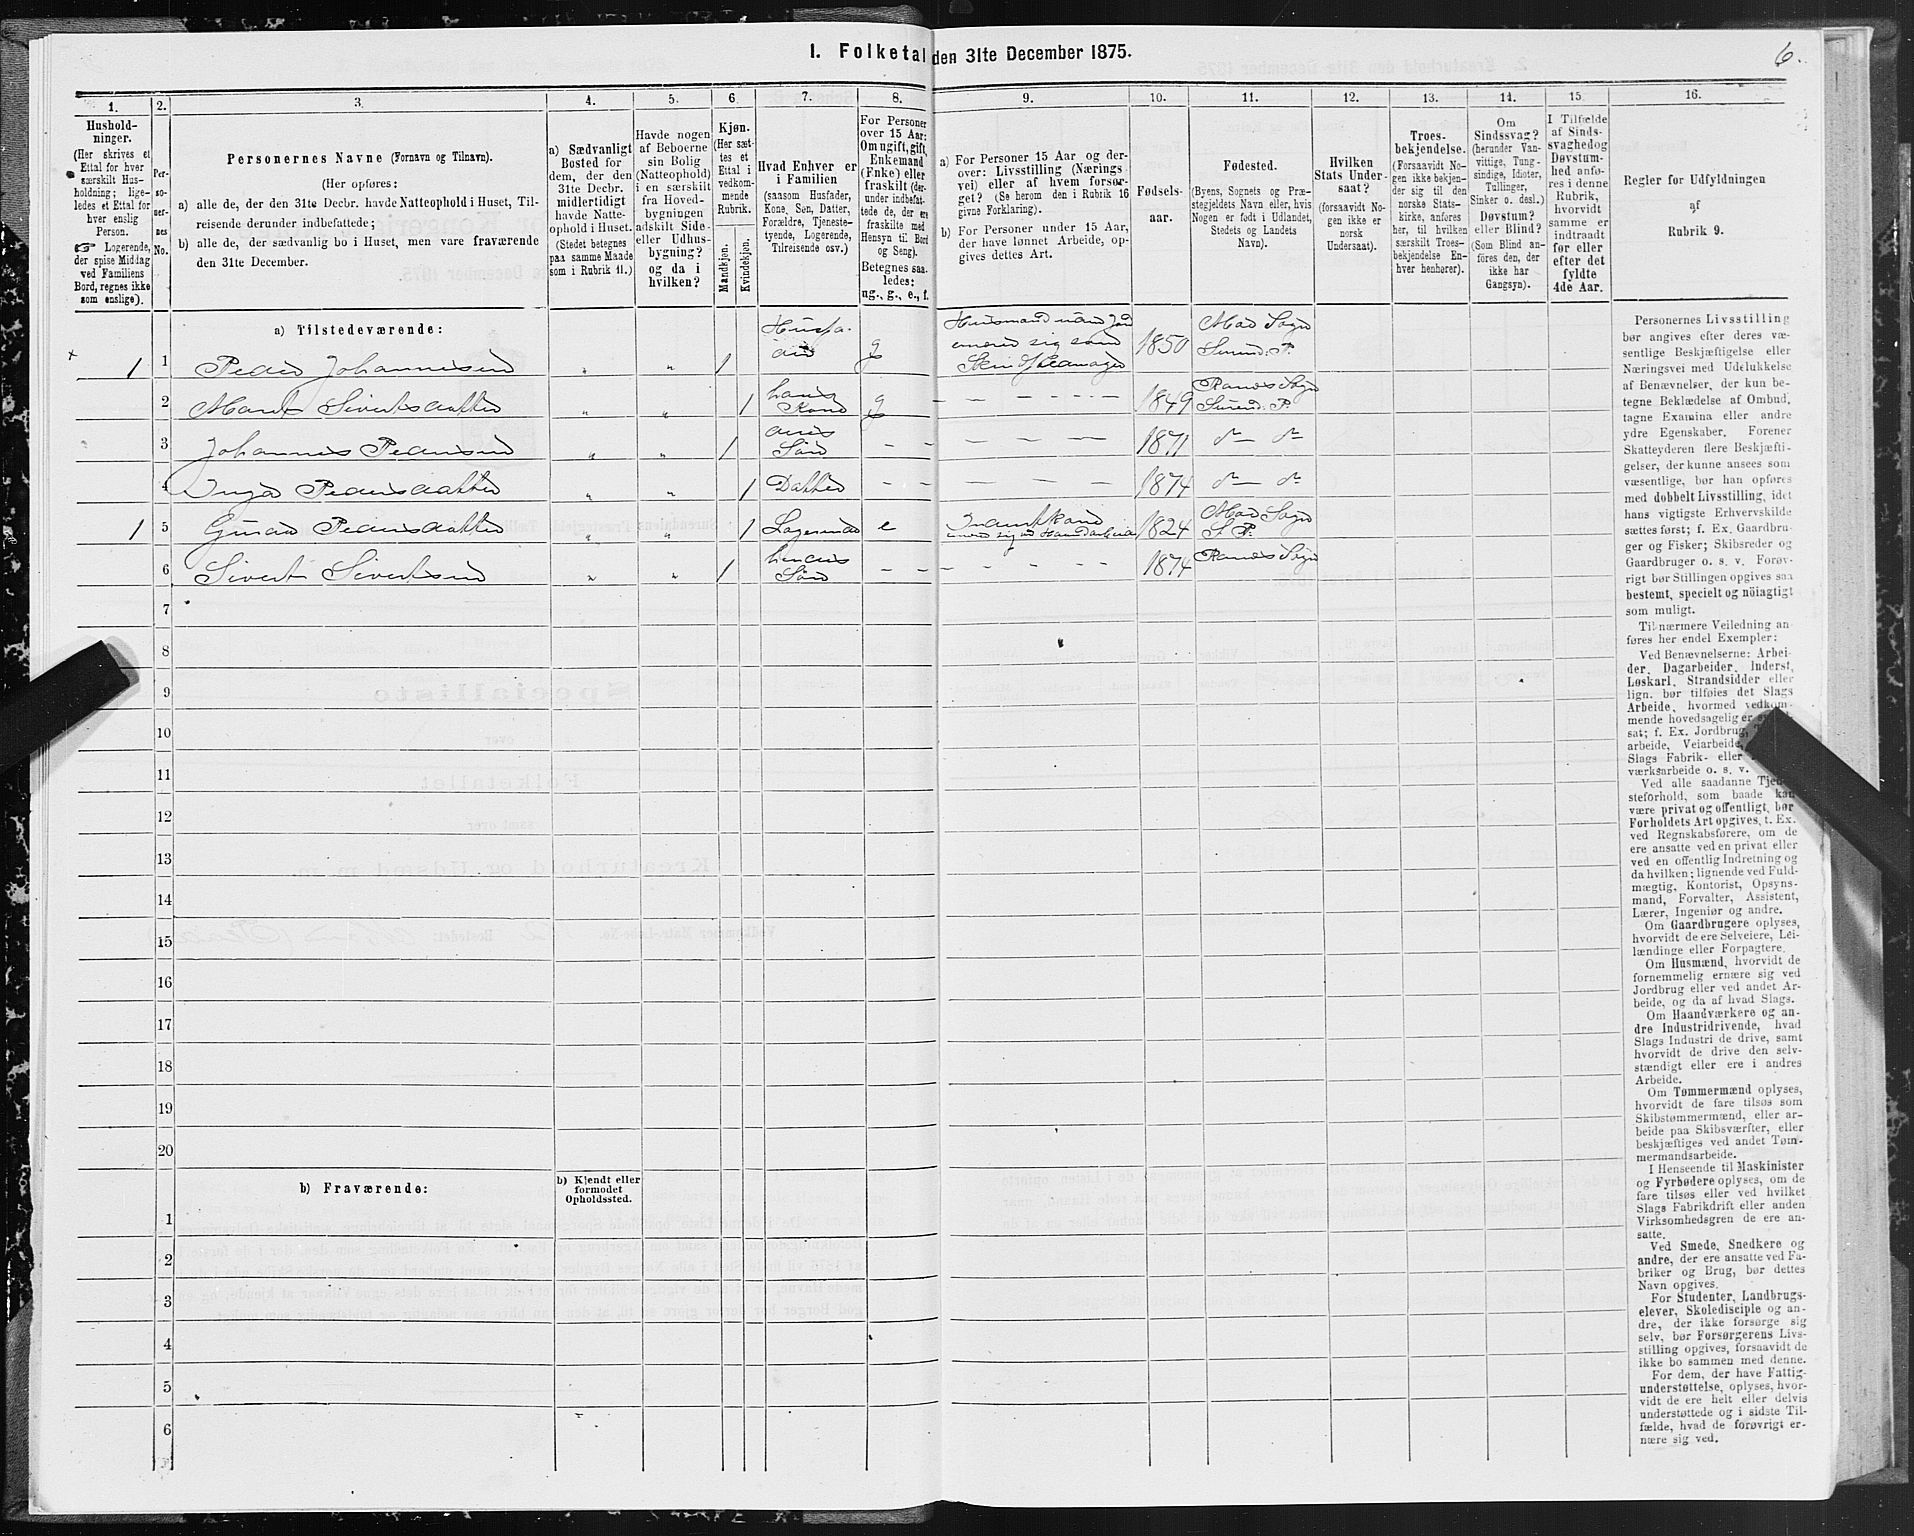 1. Folketal den 31te December 1875.
6.
1.
Hushold-
ninger.
(Her skrives et
Ettal for hver
særskilt Hus-
holdning; lige-
ledes et Ettal for
hver enslig
Person.
☞ Logerende,
der spise Middag
ved Familiens
Bord, regnes ikke
som enslige).
2.
Per-
so-
ner-
nes
No.
3.
Personernes Navne (Fornavn og Tilnavn).
(Her opføres:
a) alle de, der den 31te Decbr. havde Natteophold i Huset, Til-
reisende derunder indbefattede;
b) alle de, der sædvanlig bo i Huset, men vare fraværende
den 31te December.
4.
a) Sædvanligt
Bosted for
dem, der den
31te Decbr.
midlertidigt
havde Natte-
ophold i Huset.
(Stedet betegnes
paa samme Maade
som i Rubrik 11.)
5.
Havde nogen
af Beboerne
sin Bolig
(Natteophold)
i en særskilt
fra Hoved-
bygningen
adskilt Side-
eller Udhus-
bygning?
og da i
hvilken?
6.
Kjøn.
(Her sæt-
tes et
Ettal i
vedkom-
mende
Rubrik.
Mandkjøn.
Kvindekjøn.
7.
Hvad Enhver er
i Familien
(saasom Husfader,
Kone, Søn, Datter,
Forældre, Tjeneste-
tyende, Logerende,
Tilreisende osv.)
8.
For Personer
over 15 Aar:
Om ugift, gift,
Enkemand
(Enke) eller
fraskilt (der-
under indbefat-
tede de, der ere
fraskilte med
Hensyn til Bord
og Seng).
Betegnes saa-
ledes:
ug., g., e., f.
9.
a) For Personer 15 Aar og der-
over: Livsstilling (Nærings-
vei) eller af hvem forsør-
get? (Se herom den i Rubrik 16
givne Forklaring).
b) For Personer under 15 Aar,
der have lønnet Arbeide, op-
gives dettes Art.
10.
Fødsels-
aar.
11.
Fødested.
(Byens, Sognets og Præ-
stegjeldets Navn eller, hvis
Nogen er født i Udlandet,
Stedets og Landets
Navn).
12.
Hvilken
Stats Under-
saat?
(forsaavidt No-
gen ikke er
norsk
Undersaat).
13.
Troes-
bekjendelse.
(Forsaavidt No-
gen ikke bekjen-
der sig til den
norske Stats-
kirke, anføres
her, til hvilken
særskilt Troes-
bekjendelse En-
hver henhører).
14.
Om
Sindssvag?
(herunder Van-
vittige, Tung-
sindige, Idioter,
Tullinger,
Sinker o. desl.)
Døvstum?
eller Blind?
(Som Blind an-
føres den, der
ikke har
Gangsyn).
15.
I Tilfælde
af Sinds-
svaghed og
Døvstum-
hed anfø-
res i denne
Rubrik,
hvorvidt
samme er
indtraadt
før eller
efter det
fyldte
4de Aar.
16.
Regler for Udfyldningen
af
Rubrik 9.
a) Tilstedeværende:
1 1 Peder Johannesen „ „ 1 Husfa- g Husmand uden Jord 1850 Mo Sogn
Surend. P.
2 Marit Sivertsdatter „ „ 1 hans Kone g 1849 Ranes Sogn
Surend. P.
3 Johannes Pedersen „ „ 1 Søn 1871 do do
4 Inga Pedersdatter „ „ 1 Datter 1874 do do
1 5 Guru Pedersdatter „ „ 1 Logerende e 1824 Mo Sogn
S. P.
6 Sivert Sivertsen „ „ 1 hendes Søn 1874 Ranes Sogn
7
8
9
10
11
12
13
14
15
16
17
18
19
20
b) Fraværende:
b) Kjendt eller
formodet
Opholdssted.
1
2
3
4
5
6
Personernes Livsstilling
bør angives efter deres væ-
sentlige Beskjæftigelse eller
Næringsvei med Udelukkelse
af Benævnelser, der kun be-
tegne Beklædelse af Ombud,
tagne Examina eller andre
ydre Egenskaber. Forener
Skatteyderen flere Beskjæfti-
gelser, der kunne ansees som
væsentlige, bør han opføres
med dobbelt Livsstilling, idet
hans vigtigste Erhvervskilde
sættes først; f. Ex. Gaardbru-
ger og Fisker; Skibsreder og
Gaardbruger o. s. v. Forøv-
rigt bør Stillingen opgives saa
bestemt, specielt og nöiagtigt
som muligt.
Til nærmere Veiledning an-
føres her endel Exempler:
Ved Benævnelserne: Arbei-
der, Dagarbeider, Inderst,
Løskarl, Strandsidder eller
lign. bør tilføies det Slags
Arbeide, hvormed vedkom-
mende hovedsagelig er
sat; f. Ex. Jordbrug,
arbeide, Veiarbeide,
Slags Fabrik- eller
værksarbeide o. s. v.
Ved alle saadanne Tjene-
steforhold, som baade kan
være privat og offentligt, bør
Forholdets Art opgives, t. Ex.
ved Regnskabsførere, om de
ere ansatte ved en privat eller
ved en offentlig Indretning og
da hvilken; lignende ved Fuld-
mægtig, Kontorist, Opsyns-
mand, Forvalter, Assistent,
Lærer, Ingeniør og andre.
Om Gaardbrugere oplyses,
hvorvidt de ere Selveiere, Lei-
lændinge eller Forpagtere.
Om Husmænd, hvorvidt de
fornemmelig ernære sig ved
Jordbrug eller ved andet Ar-
beide, og da af hvad Slags.
Om Haandværkere og an-
dre Industridrivende, hvad
Slags Industri de drive, samt
hvorvidt de drive den selv-
stændigt eller ere i andres
Arbeide.
Om Tømmermænd oplyses,
hvorvidt de fare tilsøs som
Skibstømmermænd, eller ar-
beide paa Skibsværfter, eller
beskjæftiges ved andet Tøm-
mermandsarbeide.
I Henseende til Maskinister
og Fyrbødere oplyses, om de
fare tilsøs eller ved hvilket
Slags Fabrikdrift eller anden
Virksomhedsgren de ere an-
satte.
Ved Smede, Snedkere og
andre, der ere ansatte ved Fa-
briker og Brug, bør dettes
Navn opgives.
For Studenter, Landbrugs-
elever, Skoledisciple og an-
dre, der ikke forsørge sig
selv, bør Forsørgerens Livs-
stilling opgives, forsaavidt de
ikke bo sammen med denne.
For dem, der have Fattig-
understøttelse, oplyses, hvor-
vidt de ere helt eller delvis
understøttede og i sidste Til-
fælde, hvad de forøvrigt er-
nære sig ved.